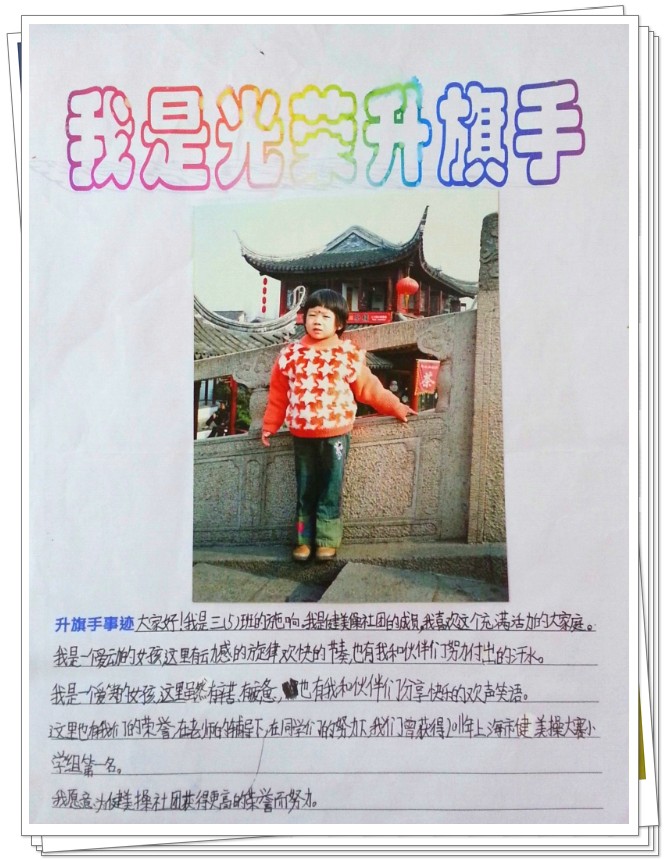 我是光荣升旗手
茶
升旗手事迹 大家好！我是三(5)班的施响。我是健美操社团的成员，我喜欢这个充满活力的大家庭。
我是一个爱动的女孩，这里有动感的旋律，欢快的节奏，也有我和伙伴们努力付出的汗水。
我是一个爱笑的女孩，这里虽然有苦、有疲惫，也有我和伙伴们分享快乐的欢声笑语。
这里也有我们的荣誉，在老师的辅导下，在同学们的努力下，我们曾获得2011年上海市健美操大赛小
学组第一名。
我愿意为健美操社团获得更高的荣誉而努力。